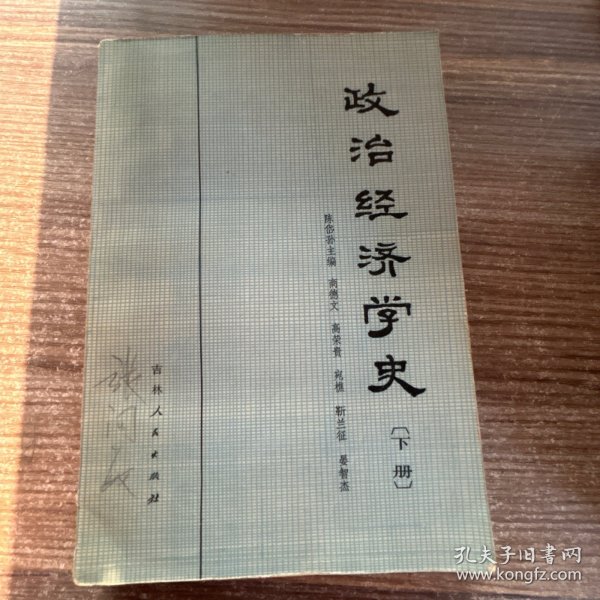 政治经济学史
〔下册〕
陈岱孙主编 商德文 高荣贵 宛樵 靳兰征 晏智杰
吉林人民出版社
孔夫子旧书网
www.kongfz.com